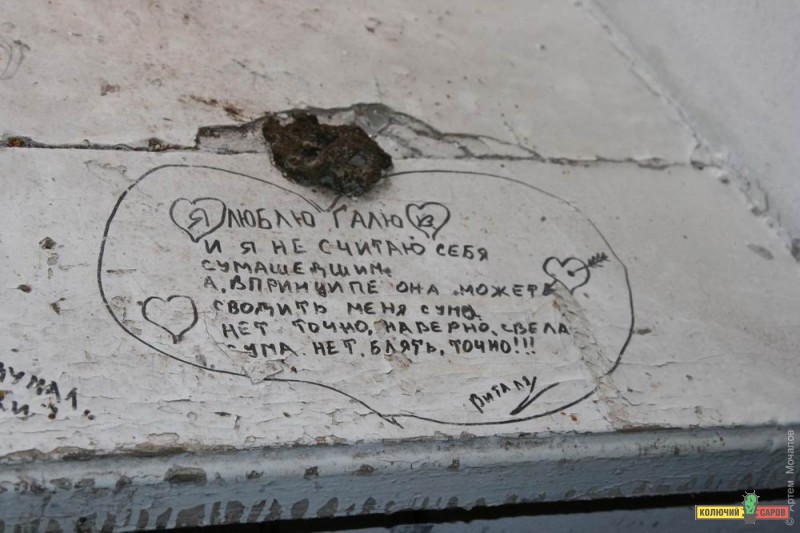 Я ЛЮБЛЮ ГАЛЮ
И Я НЕ СЧИТАЮ СЕБЯ
СУМАШЕДШИМ
А, ВПРИНЦИПЕ ОНА МОЖЕТ
СВОДИТЬ МЕНЯ СУМА
НЕТ ТОЧНО, НАВЕРНО, СВЕЛА
СУМА. НЕТ, БЛЯТЬ, ТОЧНО!!!
ВИТАЛЯ
КОЛЮЧИЙ САРОВ
© Артем Мочалов